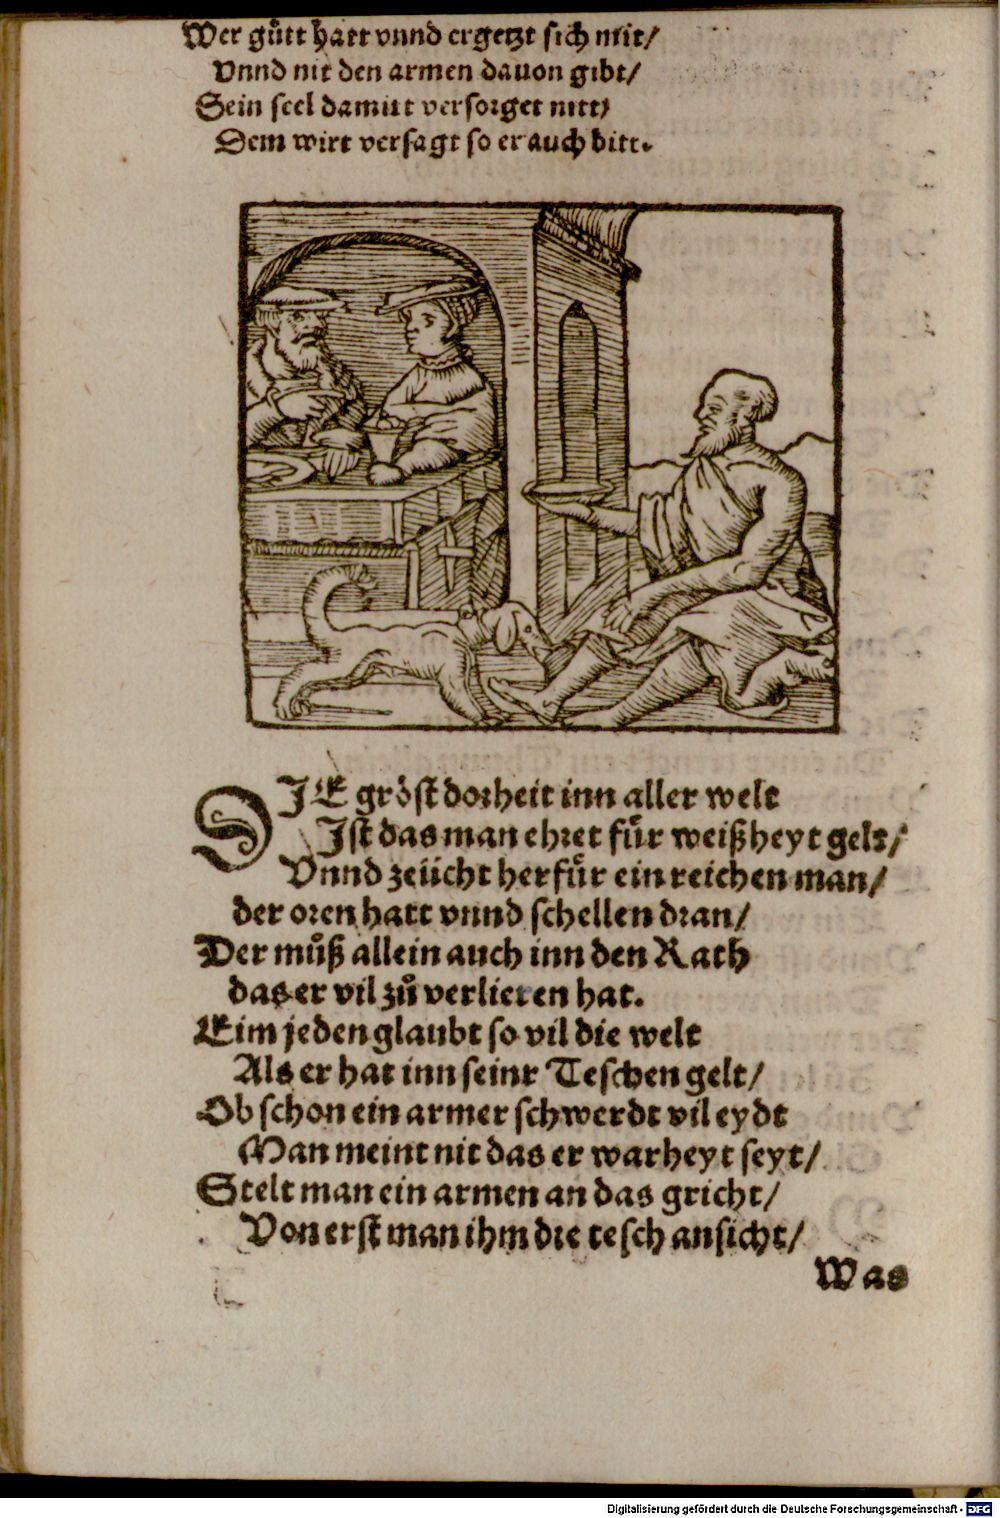 Wer guͤtt hatt vnnd ergetzt sich mit/
Vnnd nit den armen dauon gibt/
Sein seel damitt versorget nitt/
Dem wirt versagt so er auch bitt.
DIE groͤst dorheit inn aller welt
Jst das man ehret fuͤr weißheyt gelt/
Vnnd zeücht herfuͤr ein reichen man/
der oren hatt vnnd schellen dran/
Der muͦß allein auch inn den Rath
das er vil zuͦ verlieren hat.
Eim jeden glaubt so vil die welt
Als er hat inn seinr Teschen gelt/
Ob schon ein armer schwerdt vil eydt
Man meint nit das er warheyt seyt/
Stelt man ein armen an das gricht/
Von erst man ihm die tesch ansicht/
Was
Digitalisierung gefördert durch die Deutsche Forschungsgemeinschaft - DFG